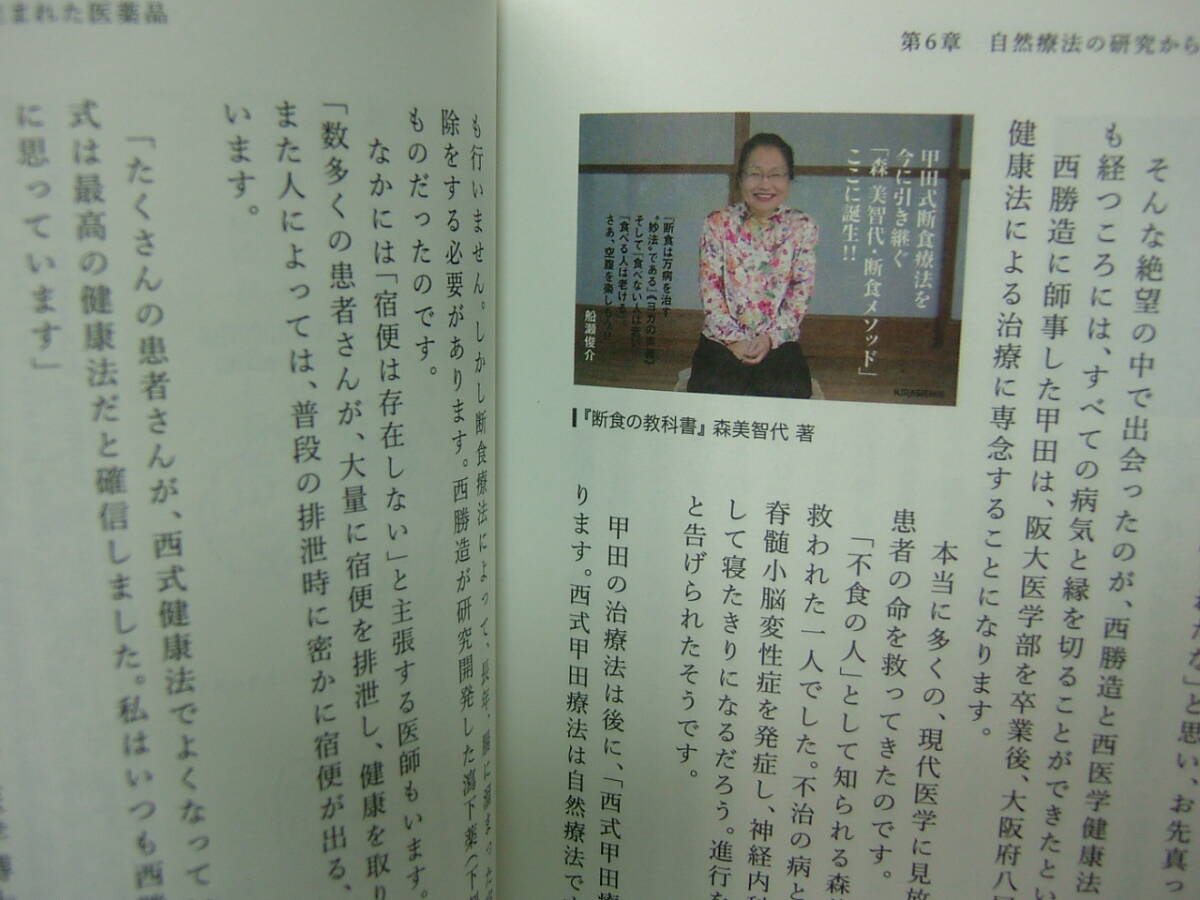 第6章 自然療法の研究から
わだな」と思い、お先真っ
そんな絶望の中で出会ったのが、西勝造と西医学健康法
も経つころには、すべての病気と縁を切ることができたとい
西勝造に師事した甲田は、阪大医学部を卒業後、大阪府八尾
健康法による治療に専念することになります。
甲田式断食療法を
今に引き継ぐ
「森 美智代・断食メソッド」
ここに誕生!!
『断食は万病を治す
“妙法”である』《ヨガの奥義》
そして『食べない人は若返り
『食べる人は老ける』
さあ、空腹を楽しもう!!
船瀬俊介
『断食の教科書』森美智代 著
本当に多くの、現代医学に見放
患者の命を救ってきたのです。
「不食の人」として知られる森
救われた一人でした。不治の病と
脊髄小脳変性症を発症し、神経内科
して寝たきりになるだろう。進行を
と告げられたそうです。
甲田の治療法は後に、「西式甲田療
ります。西式甲田療法は自然療法で
まれた医薬品
も行いません。しかし断食療法によって、長年、腸に溜まった
除をする必要があります。西勝造が研究開発した瀉下薬(下
ものだったのです。
なかには「宿便は存在しない」と主張する医師もいます。
「数多くの患者さんが、大量に宿便を排泄し、健康を取り
また人によっては、普段の排泄時に密かに宿便が出る、
います。
「たくさんの患者さんが、西式健康法でよくなって
式は最高の健康法だと確信しました。私はいつも西勝
に思っています」